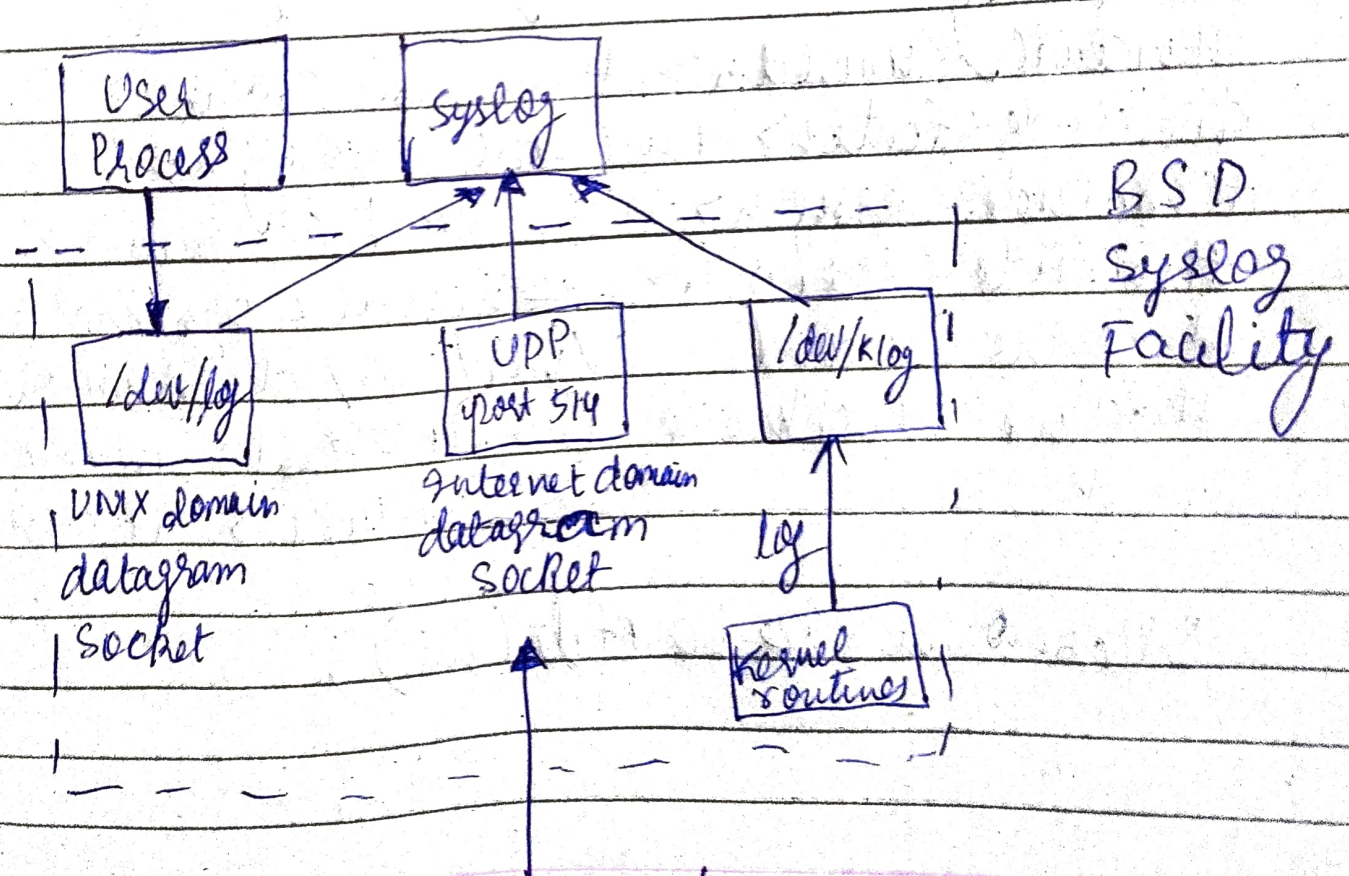 User
Process
syslog
BSD
syslog
Facility
/dev/log
UDP
port 514
/dev/klog
UNIX domain
datagram
Socket
Internet domain
datagram
Socket
log
Kernel
routines